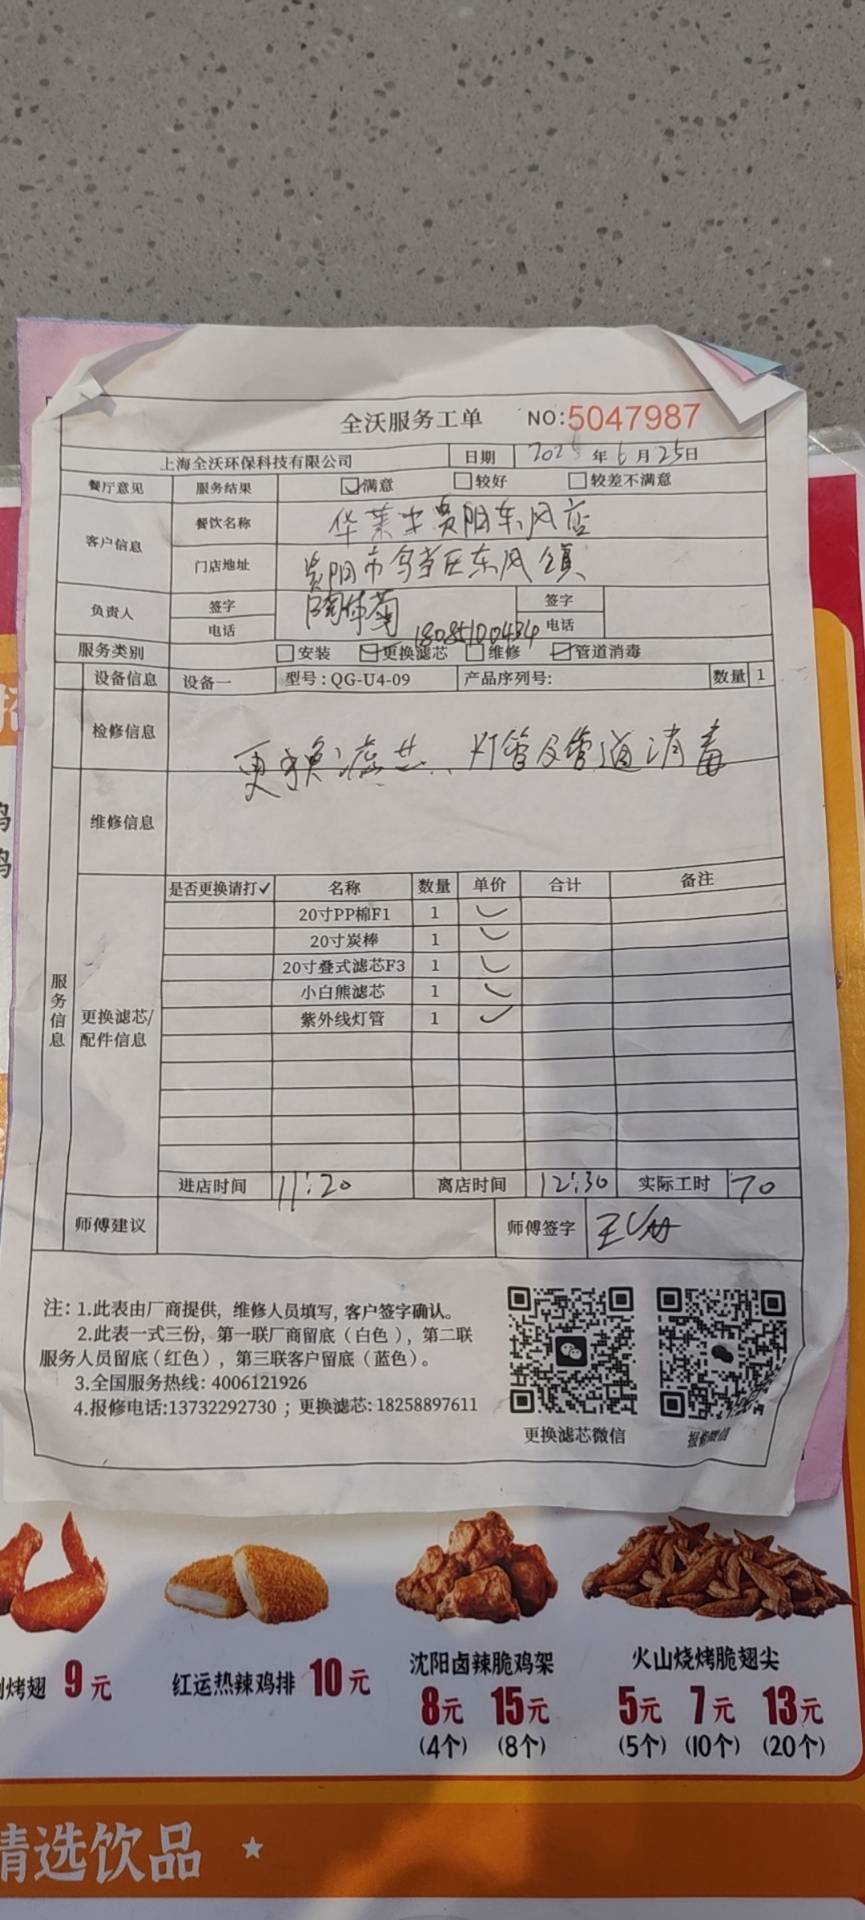 全沃服务工单 NO:5047987
上海全沃环保科技有限公司 日期 2025年6月25日
餐厅意见 服务结果 满意 较好 较差不满意
客户信息 餐饮名称 华莱士贵阳东风店
门店地址 贵阳市乌当区东风镇
负责人 签字 签字
电话 18085100434 电话
服务类别 安装 更换滤芯 维修 管道消毒
设备信息 设备一 型号:QG-U4-09 产品序列号: 数量 1
检修信息 更换滤芯、灯管及管道消毒
维修信息
服务信息
更换滤芯/配件信息
是否更换请打✓ 名称 数量 单价 合计 备注
20寸PP棉F1 1 ✓
20寸炭棒 1 ✓
20寸叠式滤芯F3 1 ✓
小白熊滤芯 1 ✓
紫外线灯管 1 ✓
进店时间 11:20 离店时间 12:30 实际工时 70
师傅建议 师傅签字
注: 1.此表由厂商提供，维修人员填写，客户签字确认。
2.此表一式三份，第一联厂商留底（白色），第二联
服务人员留底（红色），第三联客户留底（蓝色）。
3.全国服务热线: 4006121926
4.报修电话:13732292730 ; 更换滤芯: 18258897611
更换滤芯微信 报修微信
烤翅 9元
红运热辣鸡排 10元
沈阳卤辣脆鸡架
8元 15元
(4个) (8个)
火山烧烤脆翅尖
5元 7元 13元
(5个) (10个) (20个)
精选饮品